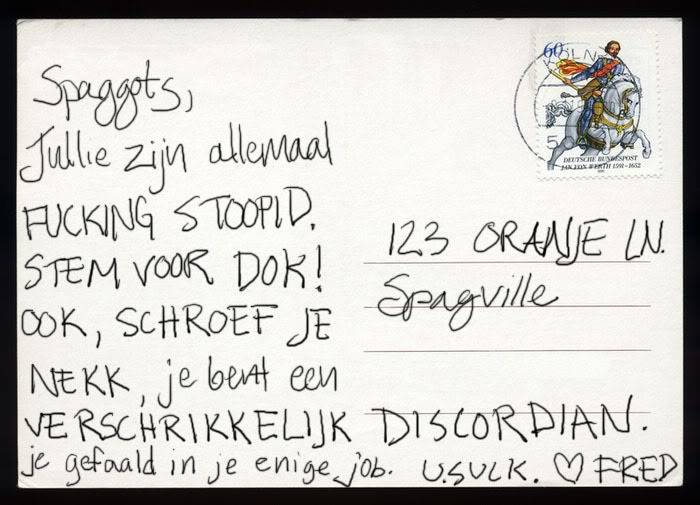 Spaggots,
Jullie zijn allemaal
FUCKING STOOPID.
STEM VOOR DOK!
OOK, SCHROEF JE
NEKK, je bent een
VERSCHRIKKELIJK DISCORDIAN.
je gefaald in je enige job. U.SUCK. ♡ FRED
60
KÖLN
5
DEUTSCHE BUNDESPOST
JAN VON WERTH 1591-1652
123 ORANJE LN.
Spagville